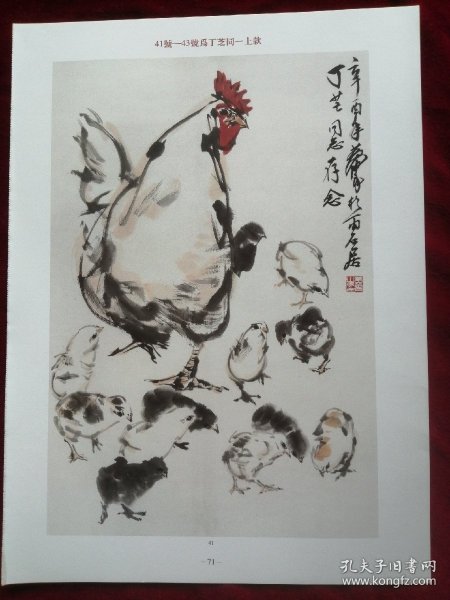 41號—43號爲丁芝同一上款
辛酉年黃胄於雨石居
丁芝同志存念
41
–71–
孔夫子旧书网
www.kongfz.com